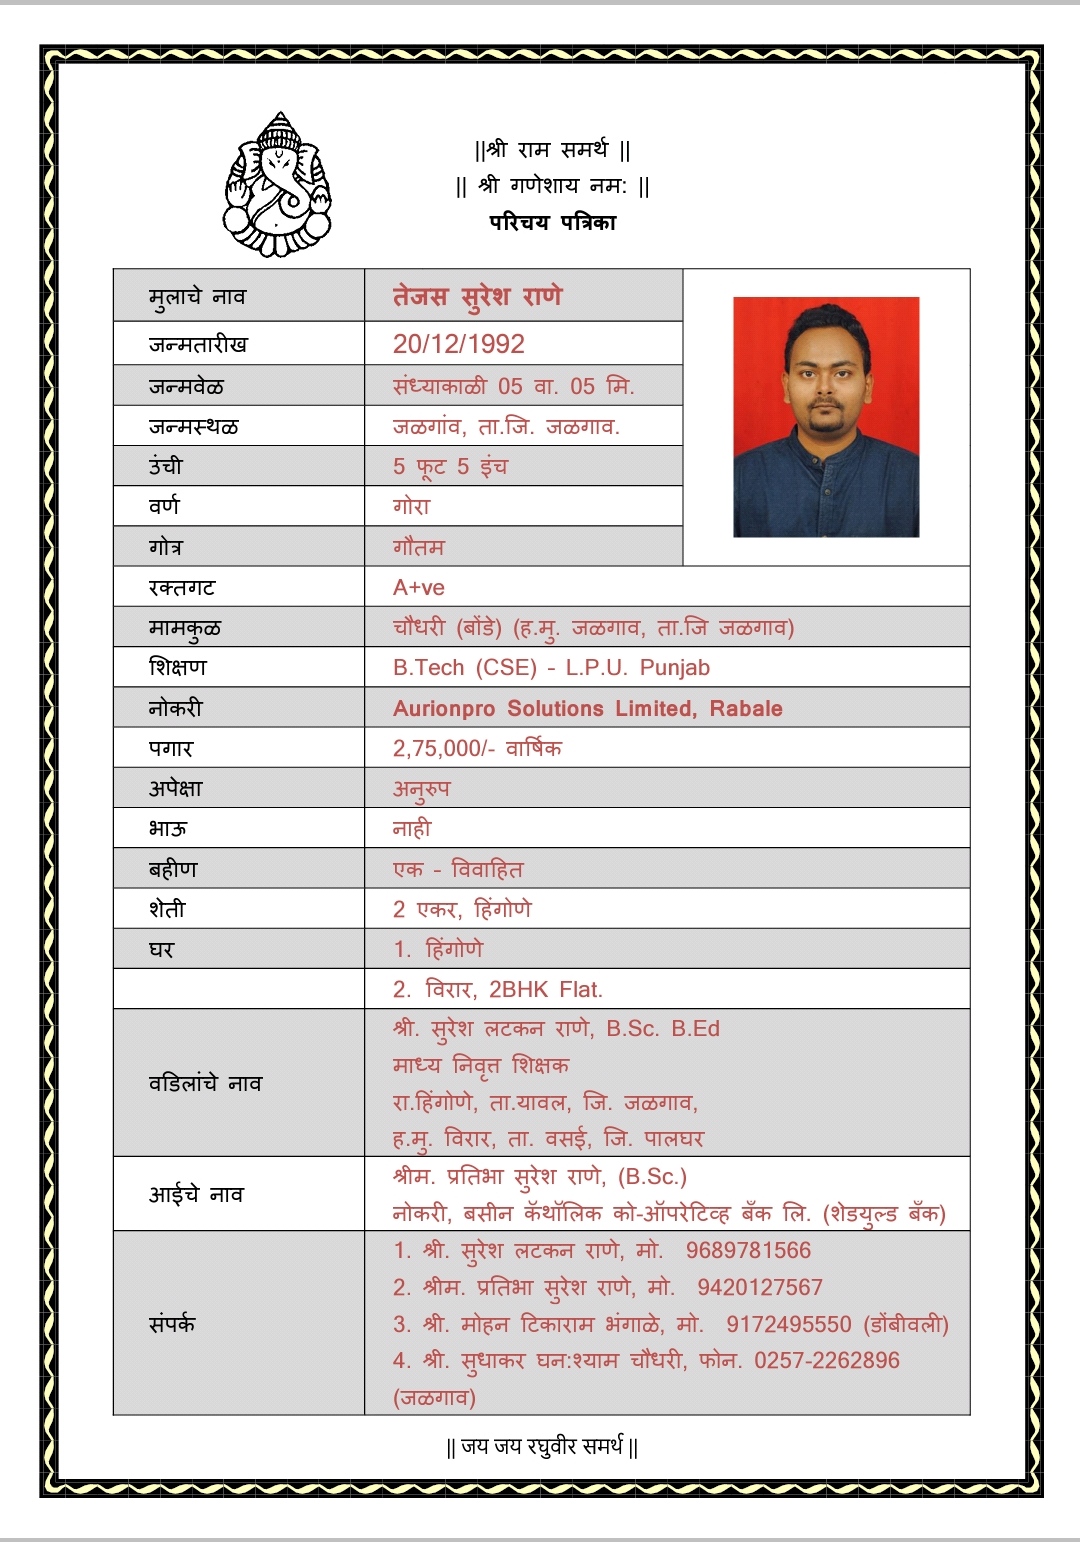 ||श्री राम समर्थ ||
|| श्री गणेशाय नम: ||
परिचय पत्रिका
मुलाचे नाव तेजस सुरेश राणे
जन्मतारीख 20/12/1992
जन्मवेळ संध्याकाळी 05 वा. 05 मि.
जन्मस्थळ जळगांव, ता.जि. जळगाव.
उंची 5 फूट 5 इंच
वर्ण गोरा
गोत्र गौतम
रक्तगट A+ve
मामकुळ चौधरी (बोंडे) (ह.मु. जळगाव, ता.जि जळगाव)
शिक्षण B.Tech (CSE) - L.P.U. Punjab
नोकरी Aurionpro Solutions Limited, Rabale
पगार 2,75,000/- वार्षिक
अपेक्षा अनुरुप
भाऊ नाही
बहीण एक - विवाहित
शेती 2 एकर, हिंगोणे
घर 1. हिंगोणे
2. विरार, 2BHK Flat.
वडिलांचे नाव श्री. सुरेश लटकन राणे, B.Sc. B.Ed
माध्य निवृत्त शिक्षक
रा.हिंगोणे, ता.यावल, जि. जळगाव,
ह.मु. विरार, ता. वसई, जि. पालघर
आईचे नाव श्रीम. प्रतिभा सुरेश राणे, (B.Sc.)
नोकरी, बसीन कॅथॉलिक को-ऑपरेटिव्ह बँक लि. (शेडयुल्ड बँक)
संपर्क 1. श्री. सुरेश लटकन राणे, मो. 9689781566
2. श्रीम. प्रतिभा सुरेश राणे, मो. 9420127567
3. श्री. मोहन टिकाराम भंगाळे, मो. 9172495550 (डोंबीवली)
4. श्री. सुधाकर घन:श्याम चौधरी, फोन. 0257-2262896
(जळगाव)
|| जय जय रघुवीर समर्थ ||